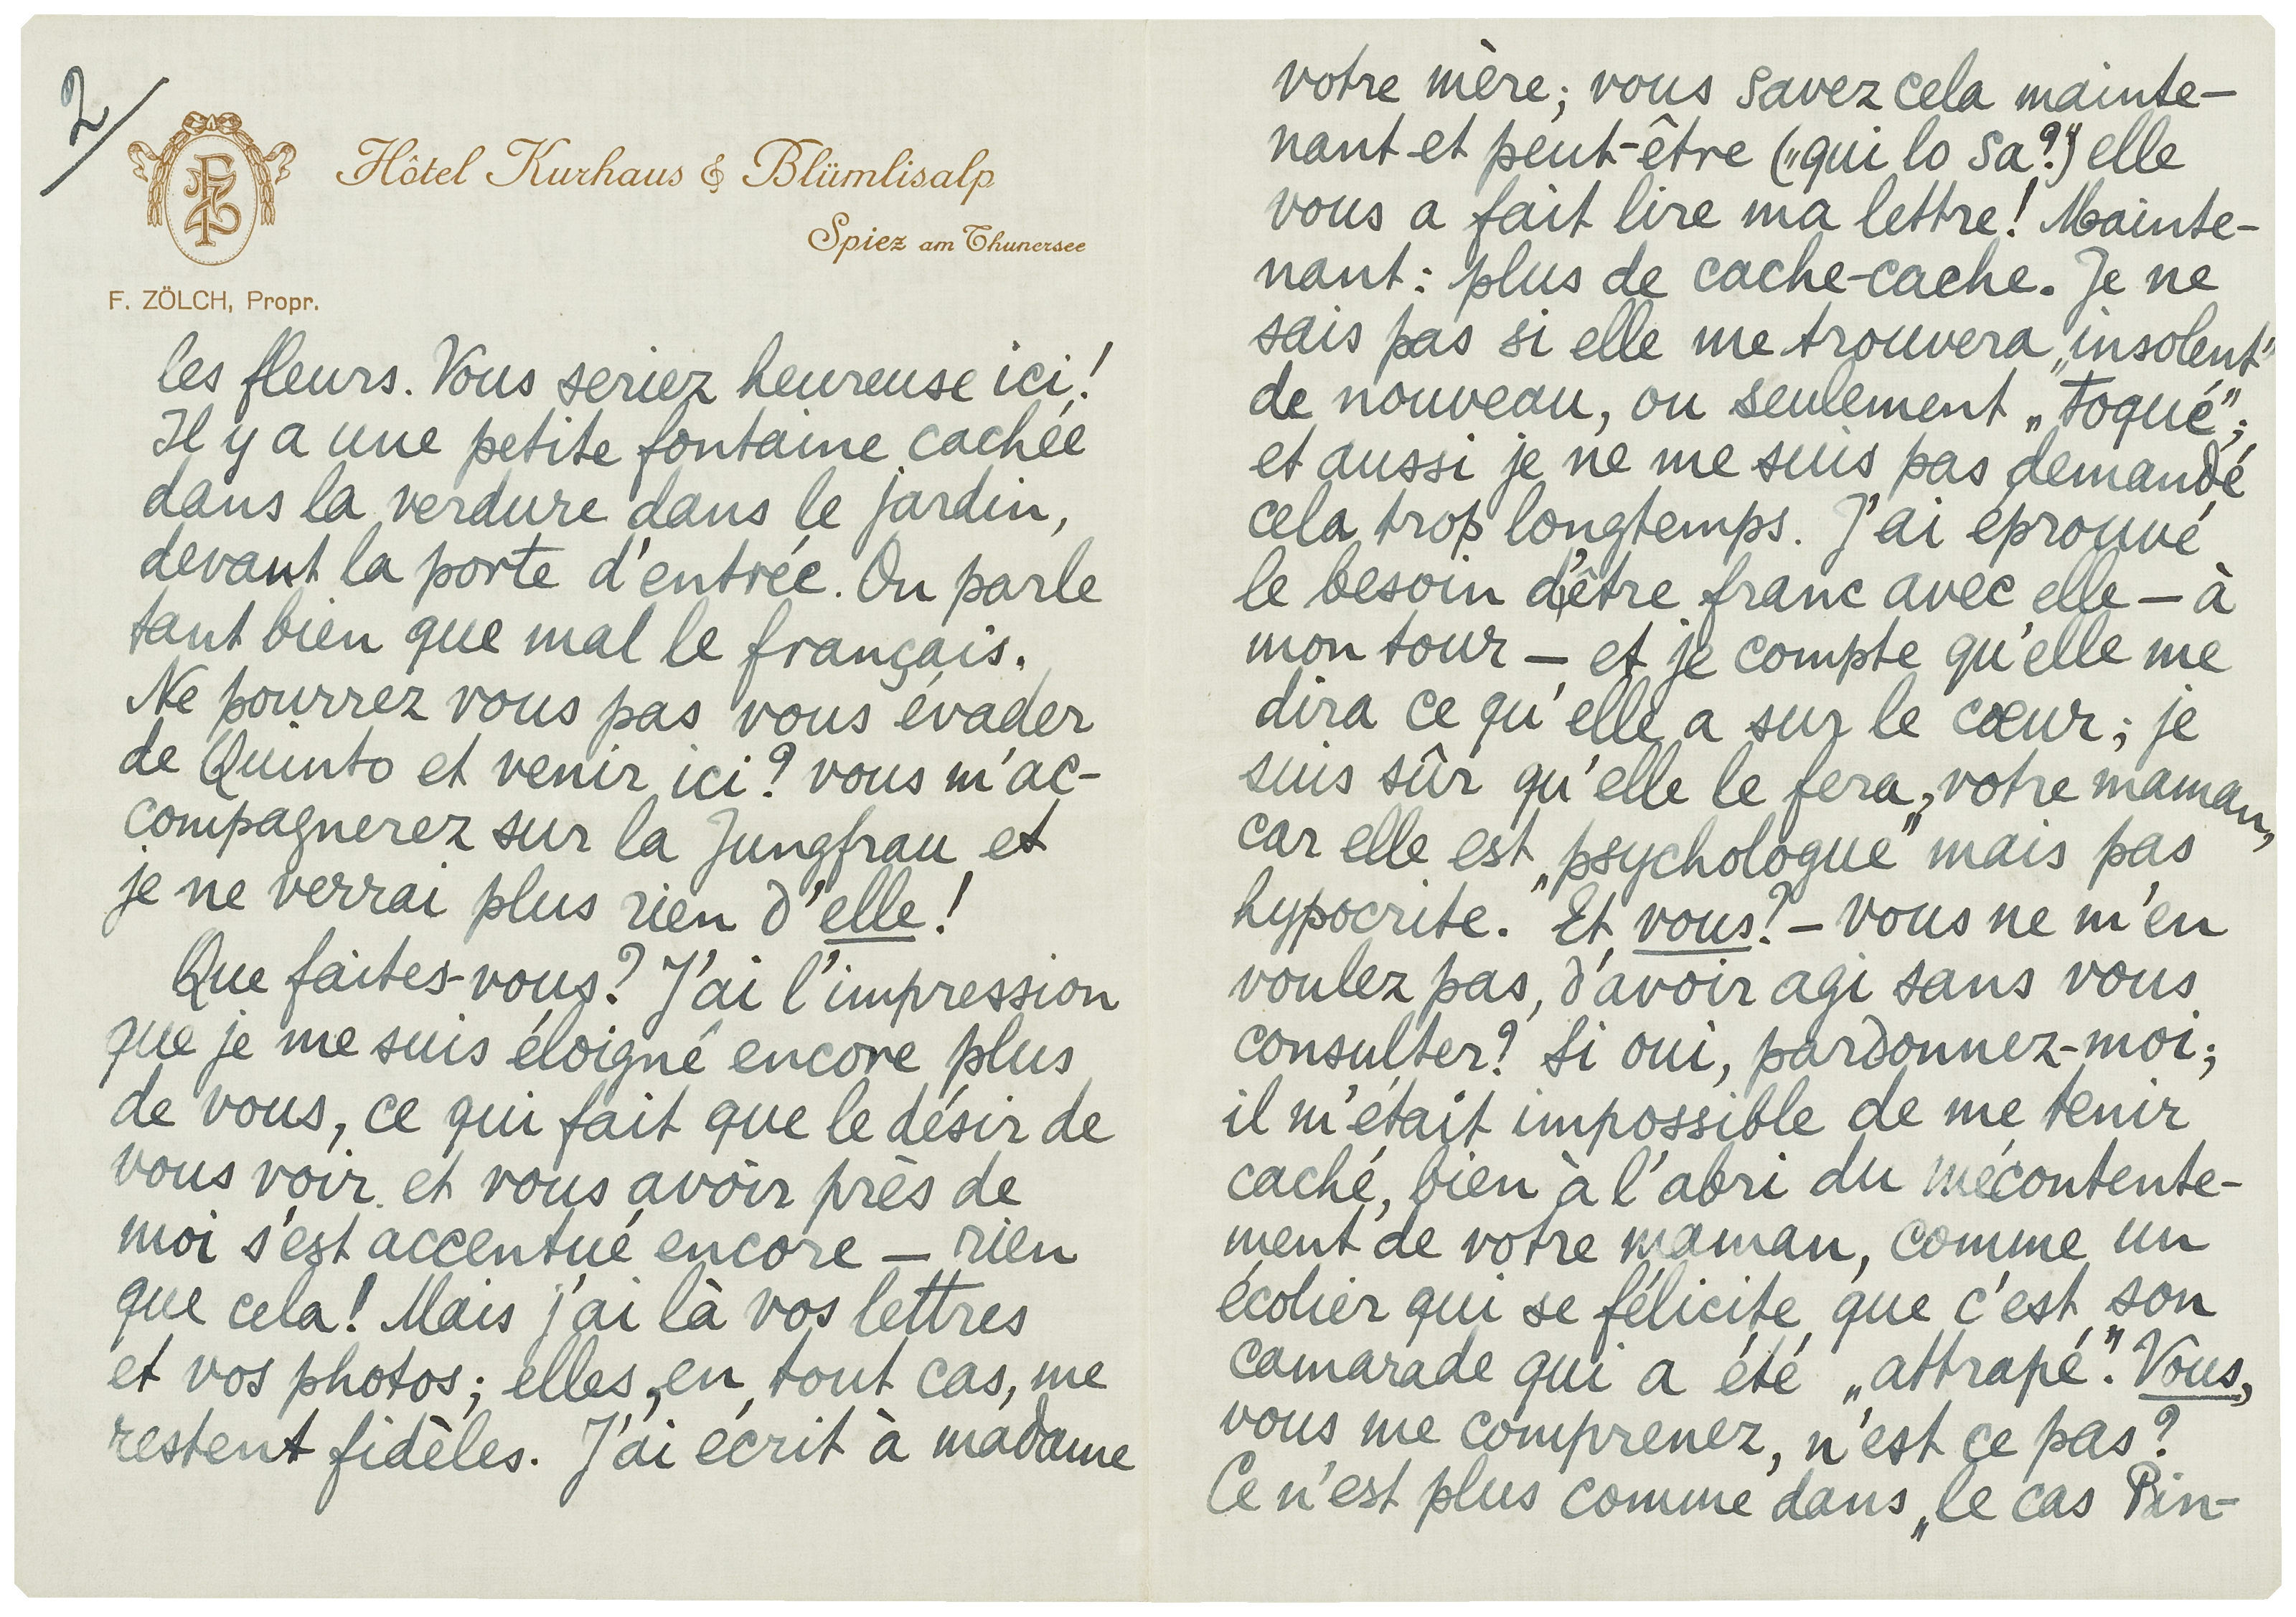 2/
FZ
Hôtel Kurhaus & Blümlisalp
Spiez am Thunersee
F. ZÖLCH, Propr.
les fleurs. Vous seriez heureuse ici!
Il y a une petite fontaine cachée
dans la verdure dans le jardin,
devant la porte d'entrée. On parle
tant bien que mal le français.
Ne pourrez vous pas vous évader
de Quinto et venir ici? vous m'ac-
compagnerez sur la Jungfrau et
je ne verrai plus rien d'elle!
Que faites-vous? J'ai l'impression
que je me suis éloigné encore plus
de vous, ce qui fait que le désir de
vous voir et vous avoir près de
moi s'est accentué encore — rien
que cela! Mais j'ai là vos lettres
et vos photos; elles, en tout cas, me
restent fidèles. J'ai écrit à madame
votre mère; vous savez cela mainte-
nant et peut-être („qui lo sa?") elle
vous a fait lire ma lettre! Mainte-
nant: plus de cache-cache. Je ne
sais pas si elle me trouvera „insolent"
de nouveau, ou seulement „toqué";
et aussi je ne me suis pas demandé
cela trop longtemps. J'ai éprouvé
le besoin d'être franc avec elle — à
mon tour — et je compte qu'elle me
dira ce qu'elle a sur le cœur; je
suis sûr qu'elle le fera, votre maman,
car elle est „psychologue" mais pas
hypocrite. Et vous? — vous ne m'en
voulez pas, d'avoir agi sans vous
consulter? Si oui, pardonnez-moi;
il m'était impossible de me tenir
caché, bien à l'abri du mécontente-
ment de votre maman, comme un
écolier qui se félicite que c'est son
camarade qui a été „attrapé". Vous,
vous me comprenez, n'est ce pas?
Ce n'est plus comme dans „le cas Pin-